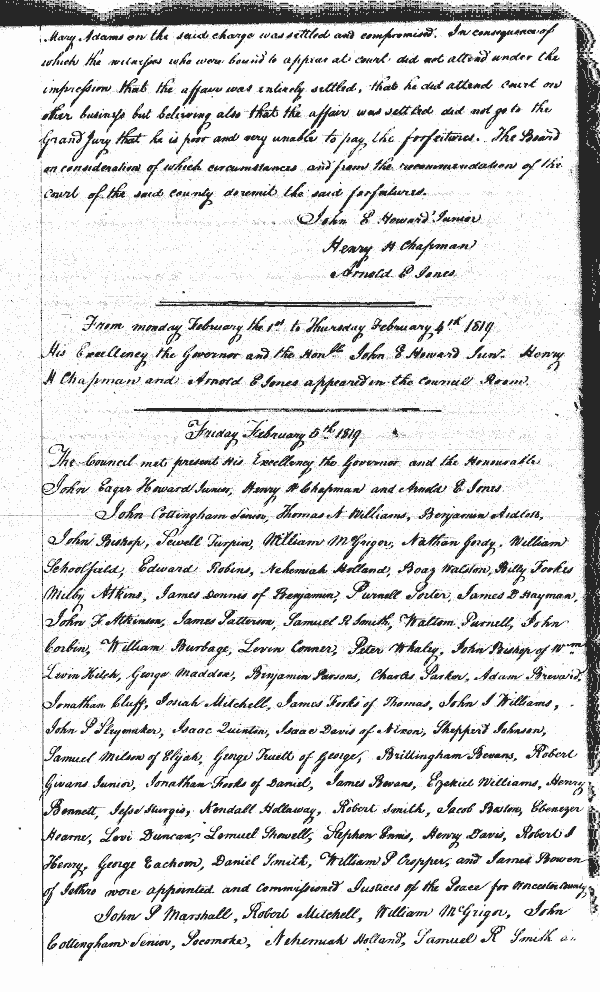 Mary Adams on the said charge was settled and compromised. In consequence of
which the witnesses who were bound to appear at court did not attend under the
impression that the affair was entirely settled, that he did attend court on
other business but believing also that the affair was settled did not go to the
Grand Jury that he is poor and very unable to pay the forfeitures. The Board
on consideration of which circumstances and from the recommendation of the
court of the said county do remit the said forfeitures.
John E Howard Junior
Henry H Chapman
Arnold E Jones
From monday February the 1st to Thursday February 4th 1819
His Excellency the Governor and the Honble John E Howard Junr. Henry
H Chapman and Arnold E Jones appeared in the council Room.
Friday February 5th 1819
The Council met present His Excellency the Governor and the Honourable
John Eager Howard Junior, Henry H Chapman and Arnold E Jones
John Cottingham Senior, Thomas N Williams, Benjamin Aydlott,
John Bishop, Sewell Turpin, William McGrigor, Nathan Gordy, William
Schoolfield, Edward Robins, Nehemiah Holland, Boaz Walston, Billy Fookes
Milby Atkins, James Dennis of Benjamin, Purnell Porter, James D Hayman,
John F Atkinson, James Patterson, Samuel R Smith, Walton Purnell, John
Corbin, William Burbage, Levin Conner, Peter Whaley, John Bishop of Wm
Levin Hitch, George Maddox, Benjamin Parsons, Charles Parker, Adam Brevard,
Jonathan Cluff, Josiah Mitchell, James Fooks of Thomas, John I Williams,
John P Slaymaker, Isaac Quintin, Isaac Davis of Nixon, Shepperd Johnson,
Samuel Melson of Elijah, George Truett of George, Brittingham Bevans, Robert
Givans Junior, Jonathan Fooks of Daniel, James Bevans, Ezekiel Williams, Henry
Bennett, Jesse Sturgis, Kendall Holloway, Robert Smith, Jacob Boston, Ebenezer
Hearne, Levi Duncan, Lemuel Showell, Stephen Ennis, Henry Davis, Robert J
Henry, George Eachorn, Daniel Smith, William P Cropper, and James Bowen
of Jethro were appointed and commissioned Justices of the Peace for Worcester County
John P Marshall, Robert Mitchell, William McGrigor, John
Cottingham Senior, Pocomoke, Nehemiah Holland, Samuel R Smith